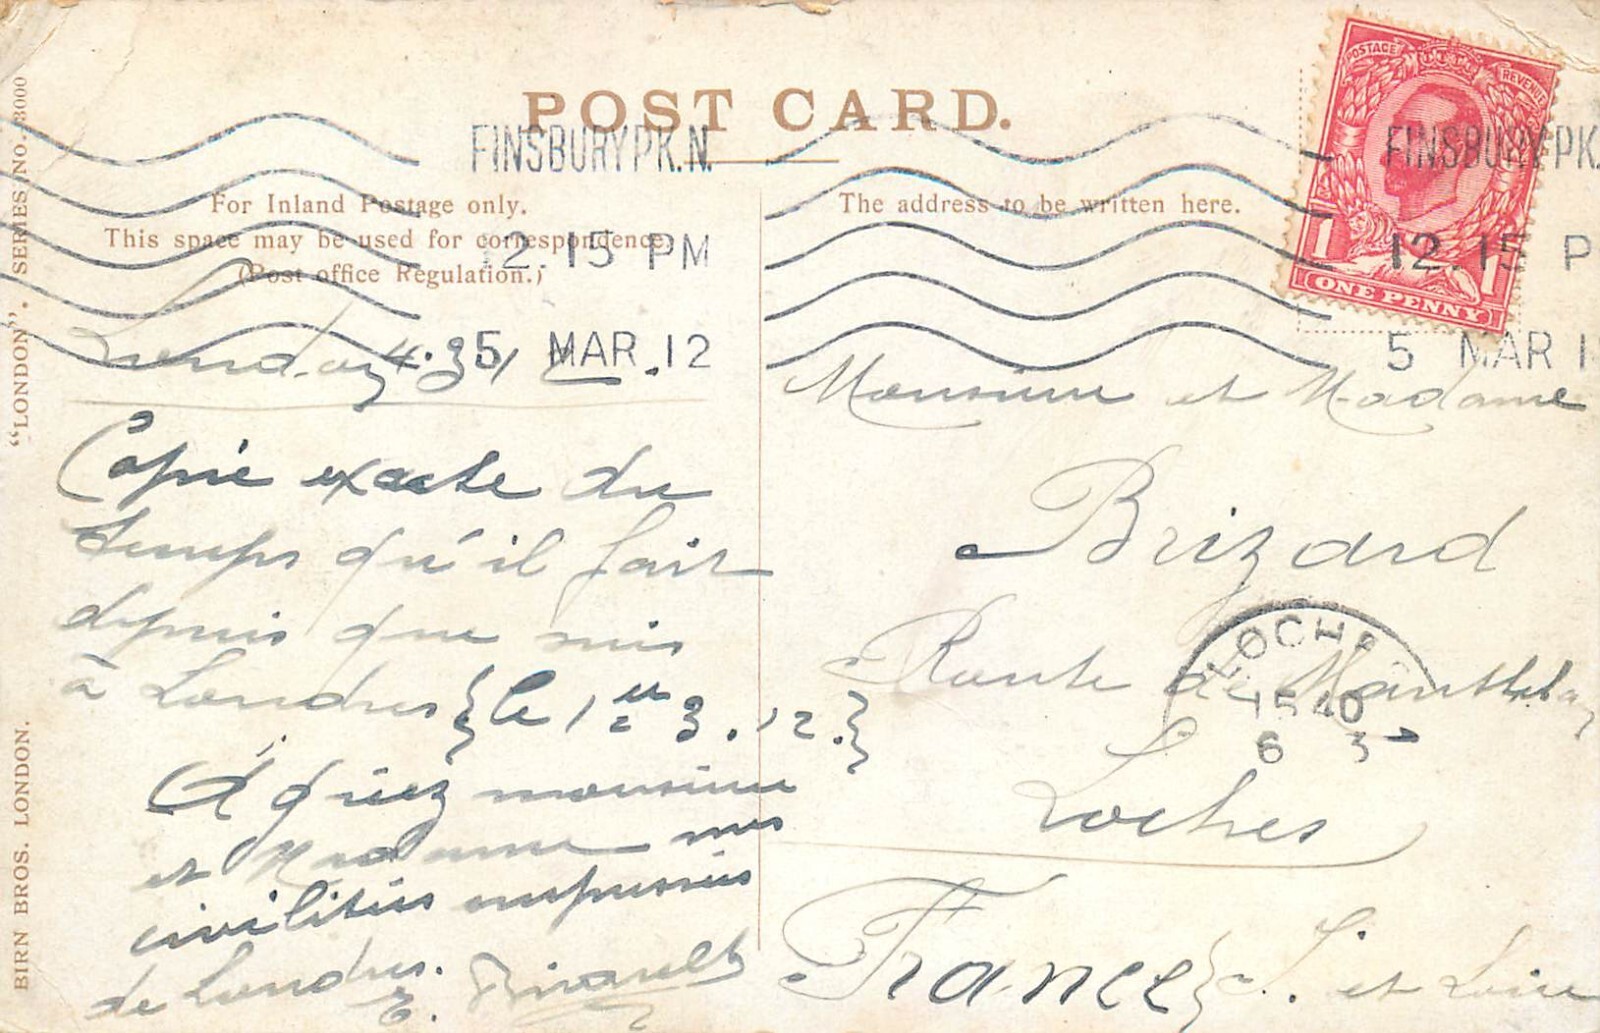 POST CARD.
FINSBURY PK. N.
12. 15 PM
5 MAR . 12
FINSBURY PK.
12 15 P
5 MAR 1
POSTAGE REVENUE
1 1
ONE PENNY
"LONDON". SERIES No. 3000
BIRN BROS. LONDON.
For Inland Postage only.
This space may be used for correspondence.
(Post office Regulation.)
The address to be written here.
Copie exacte du
temps qu'il fait
depuis que suis
à Londres { le 1er 3.12. }
Agréez monsieur
et Madame mes
civilités empressées
de Londres.
E.
Monsieur et Madame
Brizard
Route de
Loches
France } I. et Loire
LOCHES
15 40
6 3